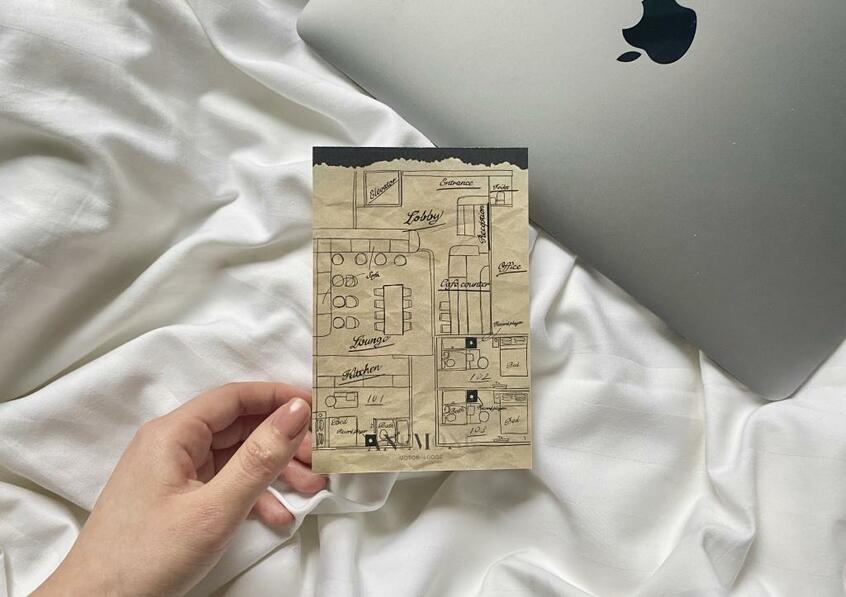 Elevator
Entrance
Lobby
Reception
Office
Sofa
Café counter
Record player
Lounge
Kitchen
101
102
Bed
Bed
Record player
Bath
Record player
103
Bed
MOTOR LODGE